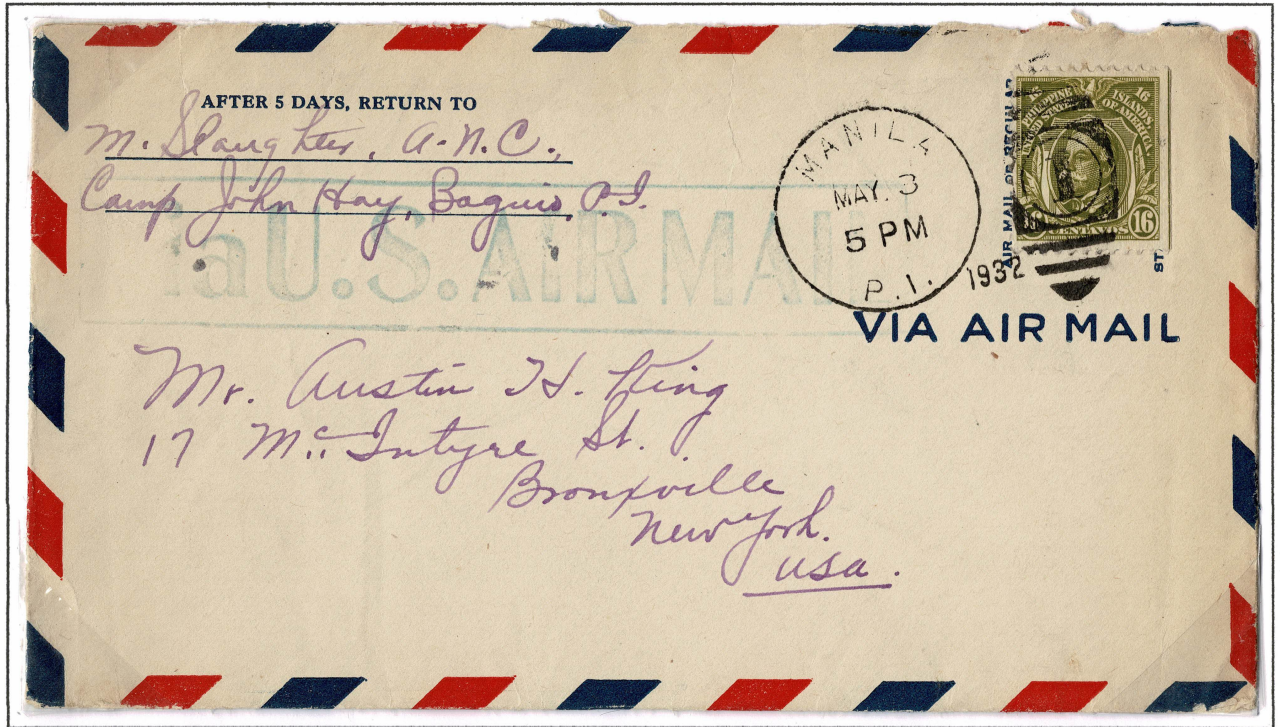 AFTER 5 DAYS, RETURN TO
M. Slaughter, A.N.C.,
Camp John Hay, Baguio, P.I.
ia U.S. AIR MAIL
MANILA
MAY. 3
5 PM
P.I.
1932
AIR MAIL OR REGULAR
ST
PHILIPPINE ISLANDS
UNITED STATES OF AMERICA
16 CENTAVOS 16
VIA AIR MAIL
Mr. Austin H. King
17 McIntyre St.
Bronxville
New York.
USA.